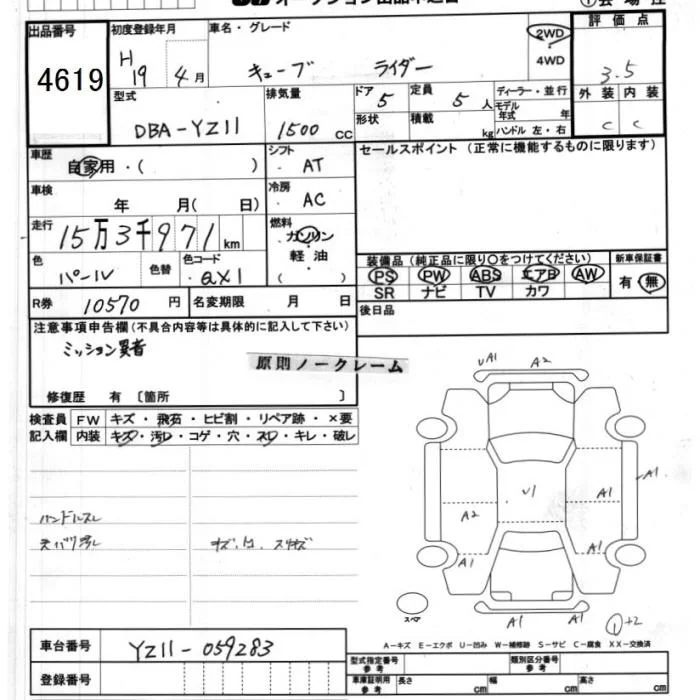 出品番号
4619
初度登録年月
H19 4月
車名・グレード
キューブ ライダー
2WD
4WD
評価点
3.5
外装 内装
C C
型式
DBA-YZ11
排気量
1500 CC
ドア
5
定員
5 人
形状
積載
kg
ディーラー・並行
モデル年式 年
ハンドル 左・右
車歴
自家用・( )
シフト
AT
セールスポイント (正常に機能するものに限ります)
車検
年 月( 日)
冷房
AC
走行
15万3千971 km
燃料
ガソリン
軽油
( )
色
パール
色替
色コード
QX1
装備品 (純正品に限り〇をつけてください)
PS PW ABS エアB AW
SR ナビ TV カワ
新車保証書
有・無
R券 10570 円
名変期限 月 日
後日品
注意事項申告欄(不具合内容等は具体的に記入して下さい)
ミッション異音
原則ノークレーム
修復歴 有 〔箇所 〕
検査員記入欄
FW キズ・飛石・ヒビ割・リペア跡・×要
内装 キズ・汚レ・コゲ・穴・スレ・キレ・破レ
ハンドルスレ
UA1 A2
A1
U1 A1
A2
A1 A1
スペア
A1
①+2
A-キズ E-エクボ U-凹み W-補修跡 S-サビ C-腐食 XX-交換済
車台番号
YZ11-059283
登録番号
型式指定番号 参考
類別区分番号 参考
車庫証明用 参考
長さ cm 幅 cm 高さ cm